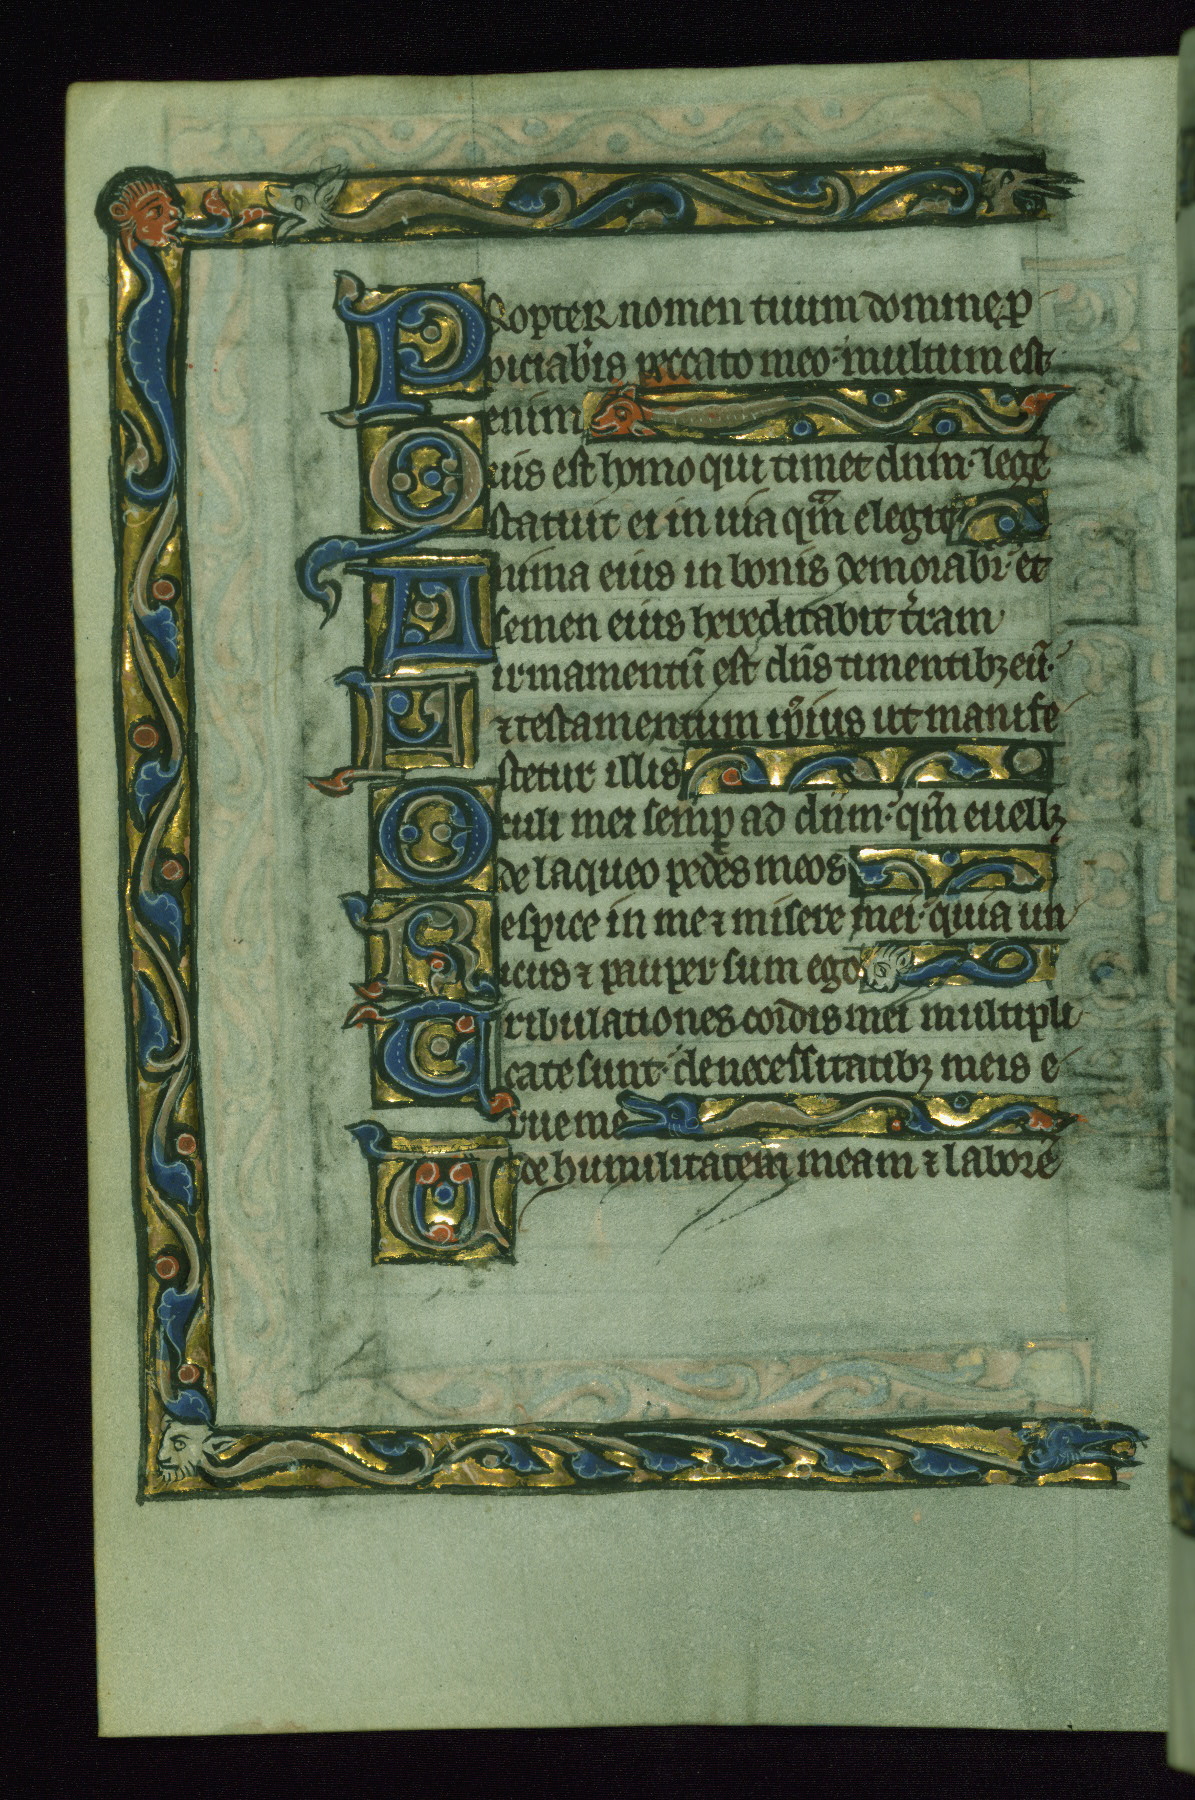 PRopteR nomen tuum domine p̱
piciab̓is peccato meo · multum est
enim
Quis est homo qui timet dn̄m · lege
statuit ei in uia qᵃm elegit
Anima eius in bonis demorabr̄ · et
semen eius hereditabit t̄ram
irmamentū est dn̄s timentibꝫ eū ·
⁊ testamentum ip̄ius ut manife
stetur illis
Oculi mei semꝑ ad dn̄m · qm̄ euellꝫ
de laqueo pedes meos
Respice in me ⁊ misere mei · quia un
icus ⁊ pauper sum ego
Tribulationes cordis mei multipli
cate sunt · de necessitatibꝫ meis e
rue me
Uide humilitatem meam ⁊ laborē